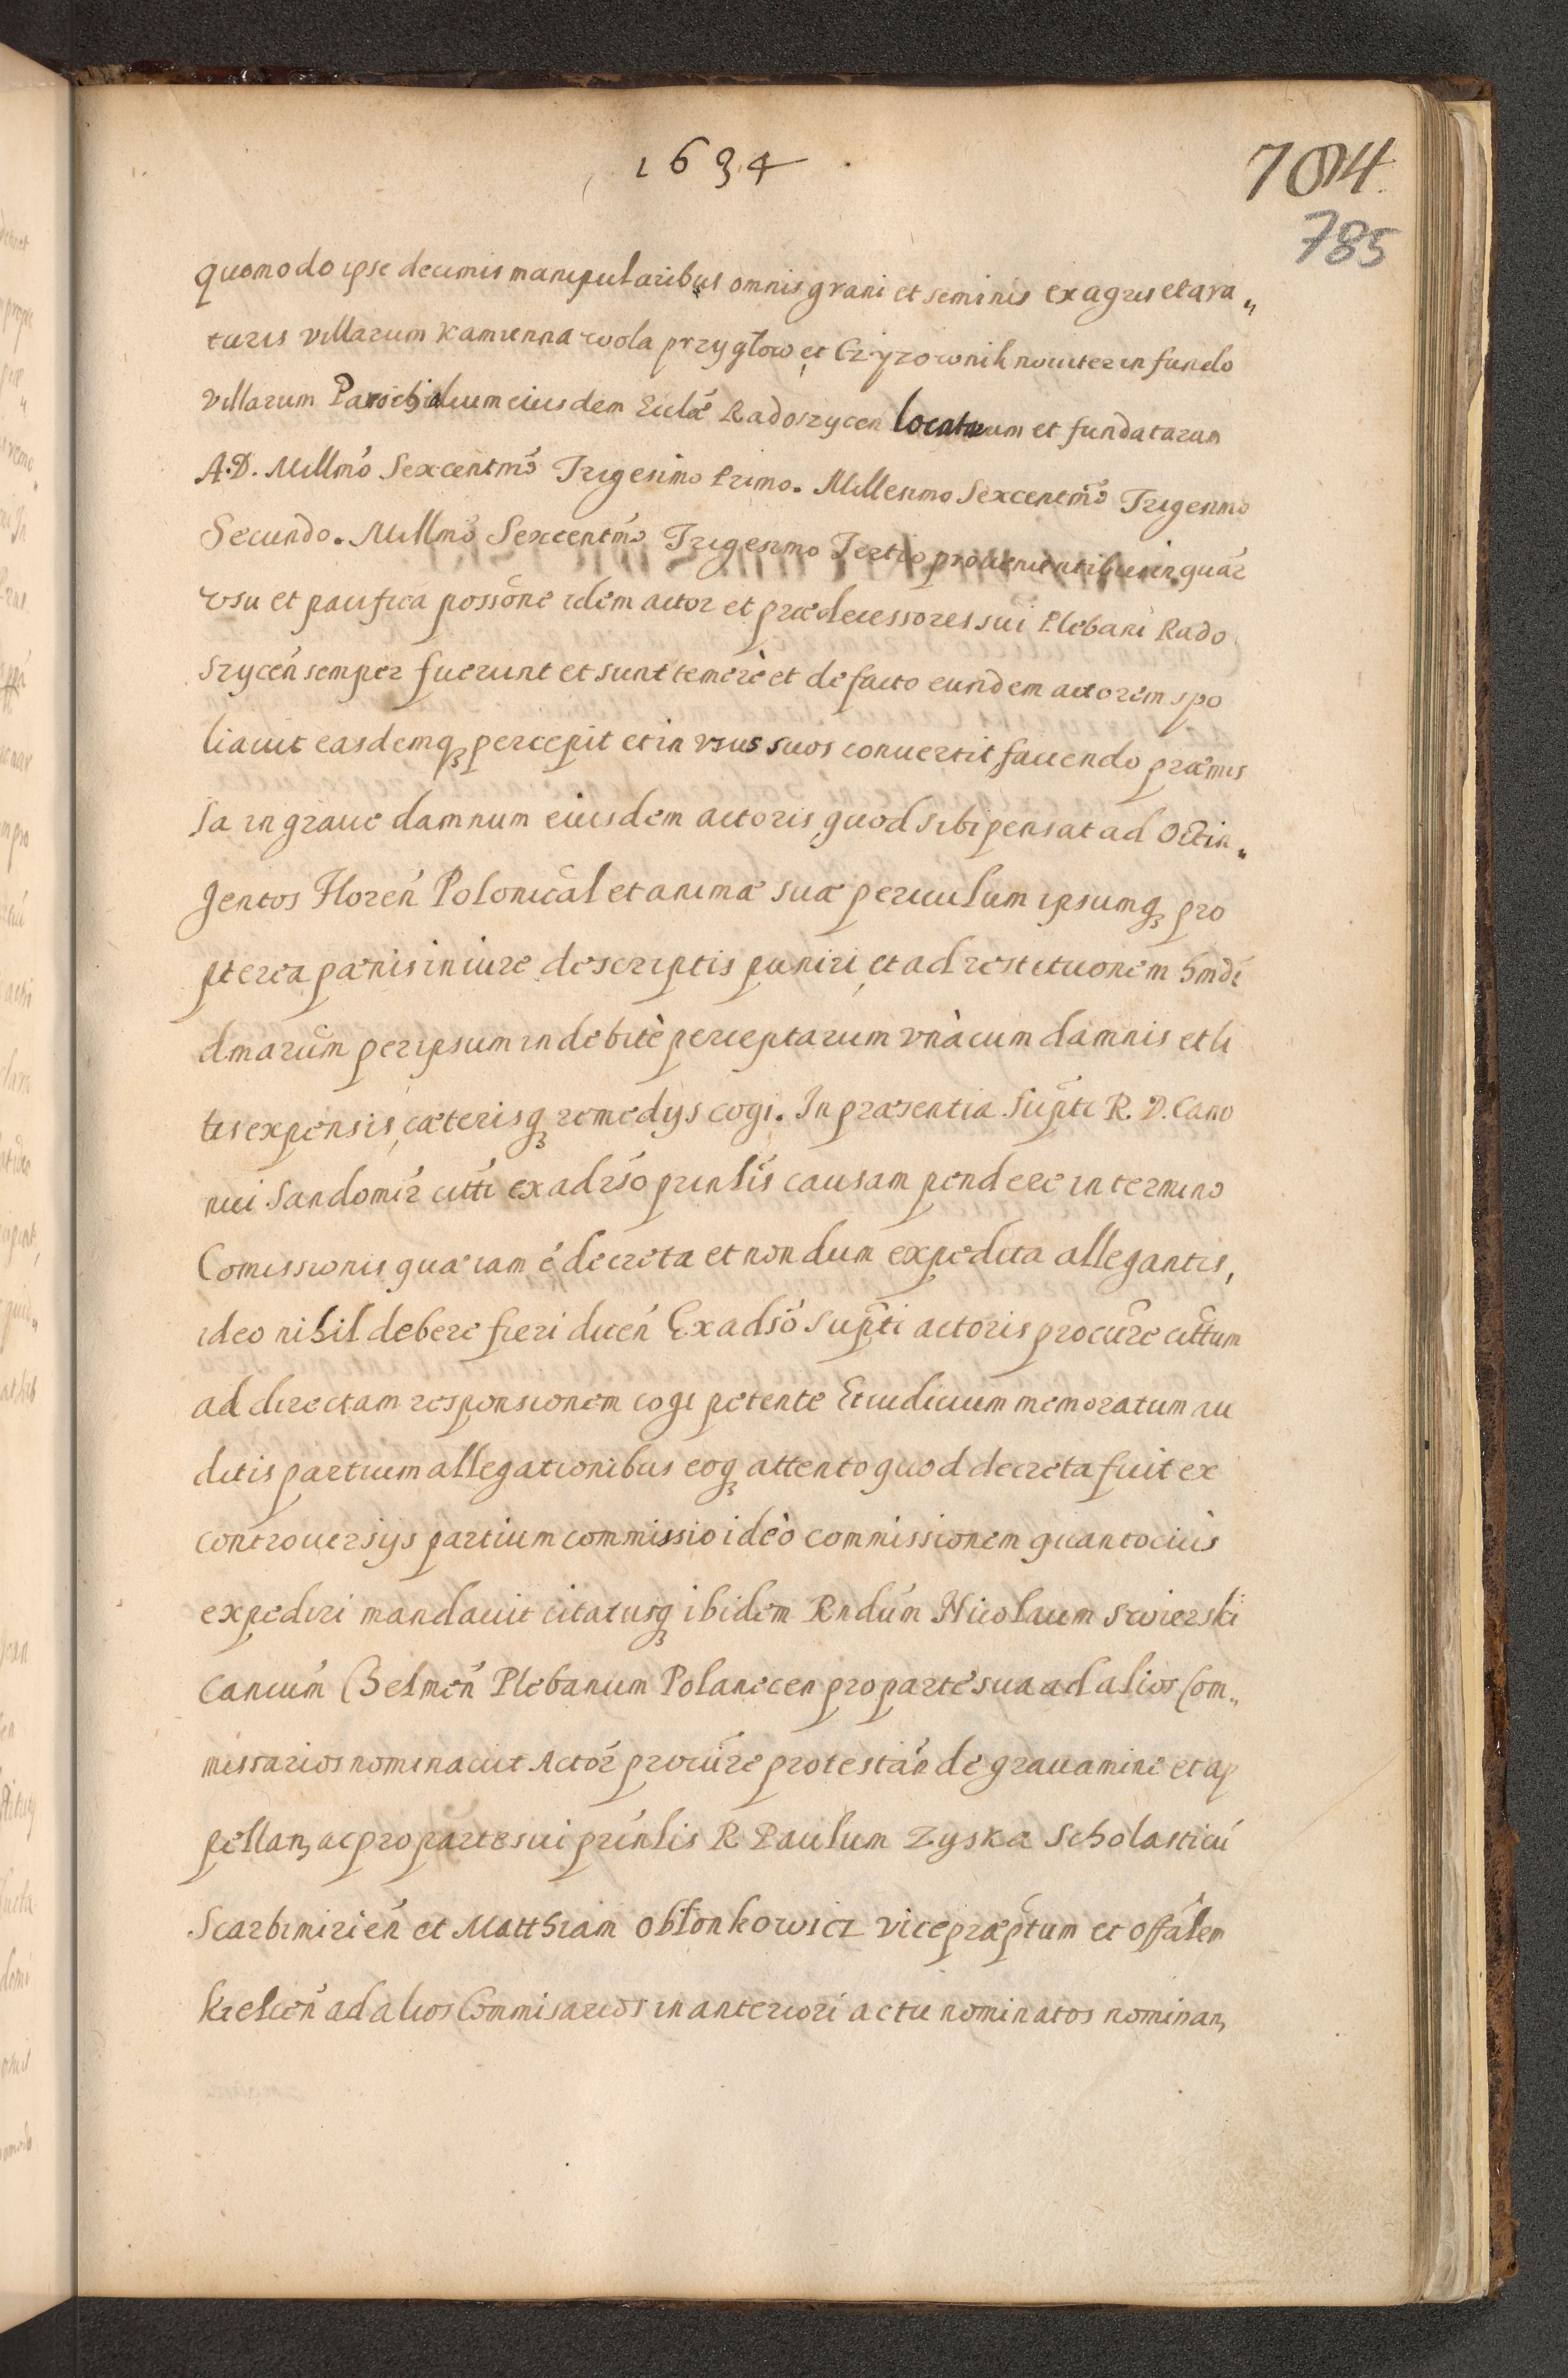 1634
7014
785
quomodo ipse decimis manipularibus omnis grani et seminis ex agris et ara„
turis villarum Kamienna wola przygłow et Czyzownik nouiter in fundo
villarum Parochialium eiusdem Eccłæ Radoszycen locatarum et fundatarum
A.D. Millmo Sexcentmo Trigesimo Primo. Millesimo Sexcentmo Trigesimo
Secundo. Millmo Sexcentmo Trigesimo Tertio prouenientibus in quar
vsu et pacifica possone idem actor et prædecessores sui Plebani Rado
szycen semper fuerunt et sunt temerè et de facto eundem actorem spo
liauit easdemq percepit et in vsus suos conuertit faciendo præmis
sa in graue damnum eiusdem actoris quod sibi pensat ad Octin„
gentos Floren Polonical et animæ suæ periculum ipsumq pro
pterea pænis in iure descriptis puniri et ad restitutionem hmdi
dmarum per ipsum indebitè perceptarum vnà cum damnis et li
tis expensis cæterisq remedys cogi. In præsentia supti R. D. Cano
nici Sandomir citti ex adrso prinlis causam pendere in termino
Comissionis quæ iam é decreta et nondum expedita allegantis,
ideo nihil debere fieri dicen Ex adso supti actoris procure cittum
ad directam responsionem cogi petente Et iudicium memoratum au
ditis partium allegationibus eoq attento quod decreta fuit ex
controuersijs partium commissio ideò commissionem quantocius
expediri mandauit citatusq ibidem Rndum Nicolaum swierski
Cancum Chelmen Plebanum Polanecen pro parte sua ad alios Com„
missarios nominauit Actor procure protestan de grauamine et ap
pellan, ac pro parte sui prinlis R Paulum Zyska Scholasticu
Scarbimirien et Matthiam Obłonkowicz vicepræptum et offalem
kielcen ad alios Commisarios in anteriori actu nominatos nominan,